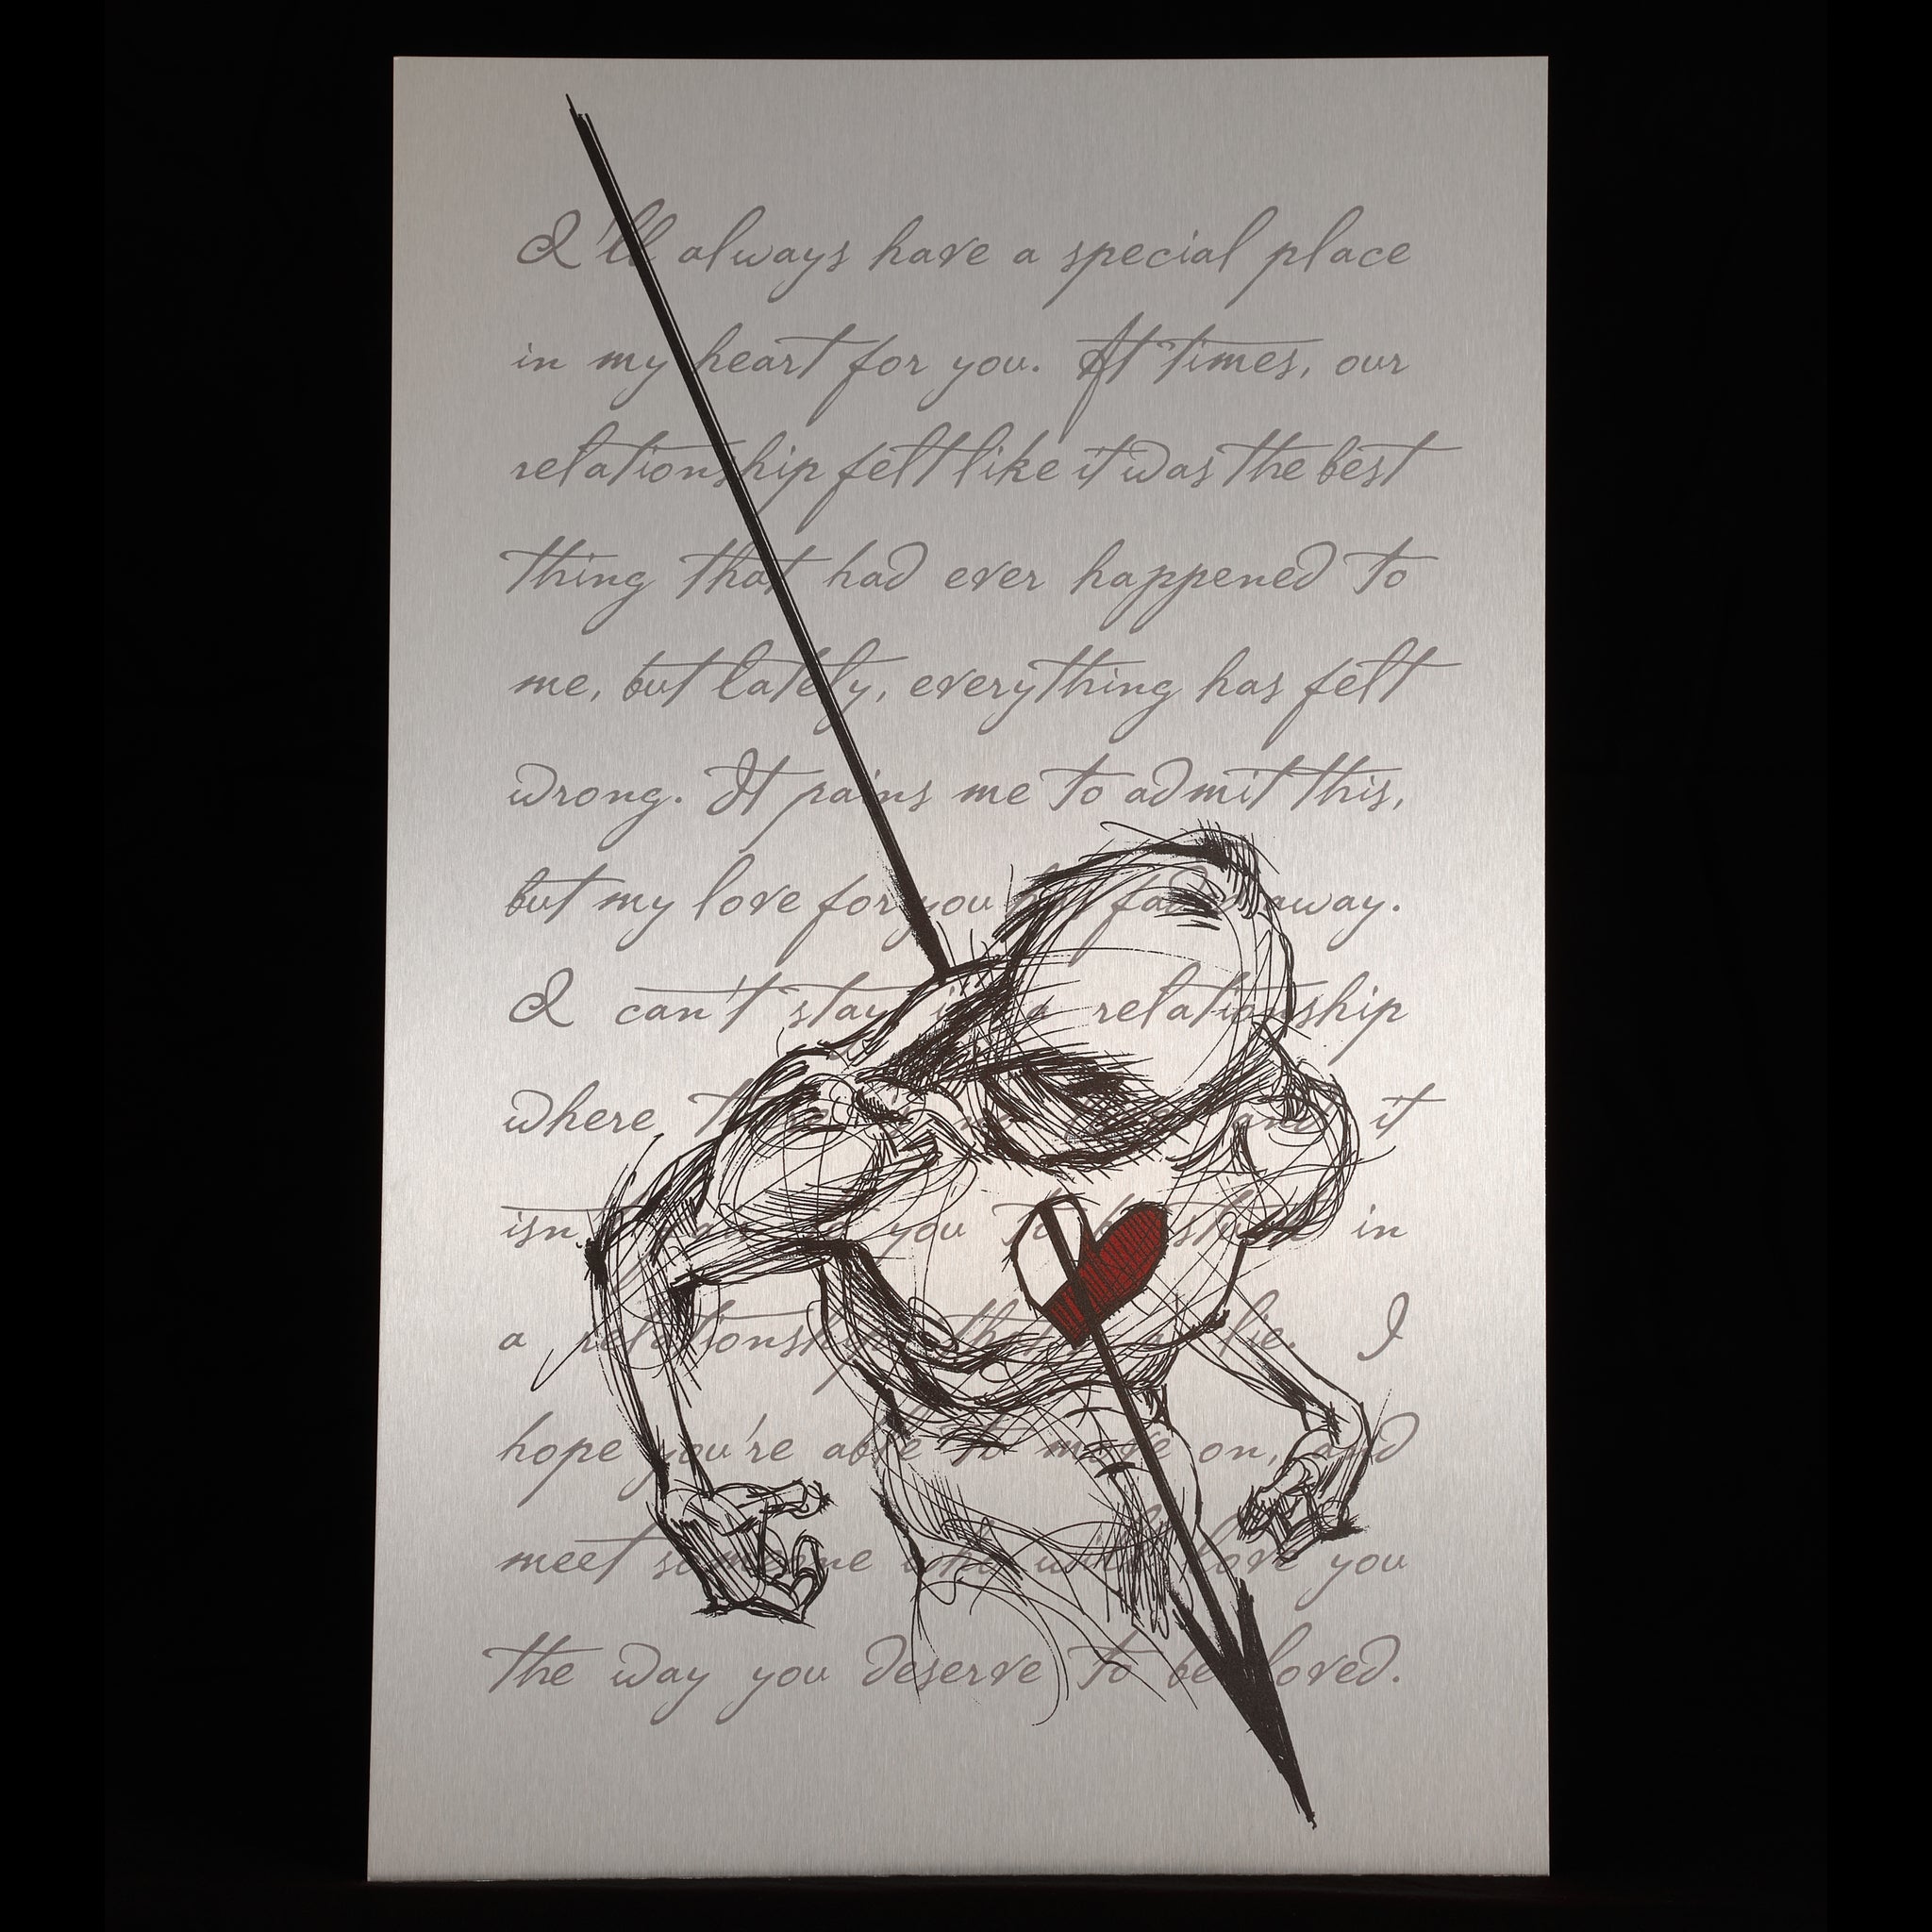 I'll always have a special place
in my heart for you. At times, our
relationship felt like it was the best
thing that had ever happened to
me, but lately, everything has felt
wrong. It pains me to admit this,
but my love for you has faded away.
I can't stay in a relationship
where there is no love, and it
isn't you to be stuck in
a relationship that's a lie. I
hope you're able to move on, and
meet someone who will love you
the way you deserve to be loved.